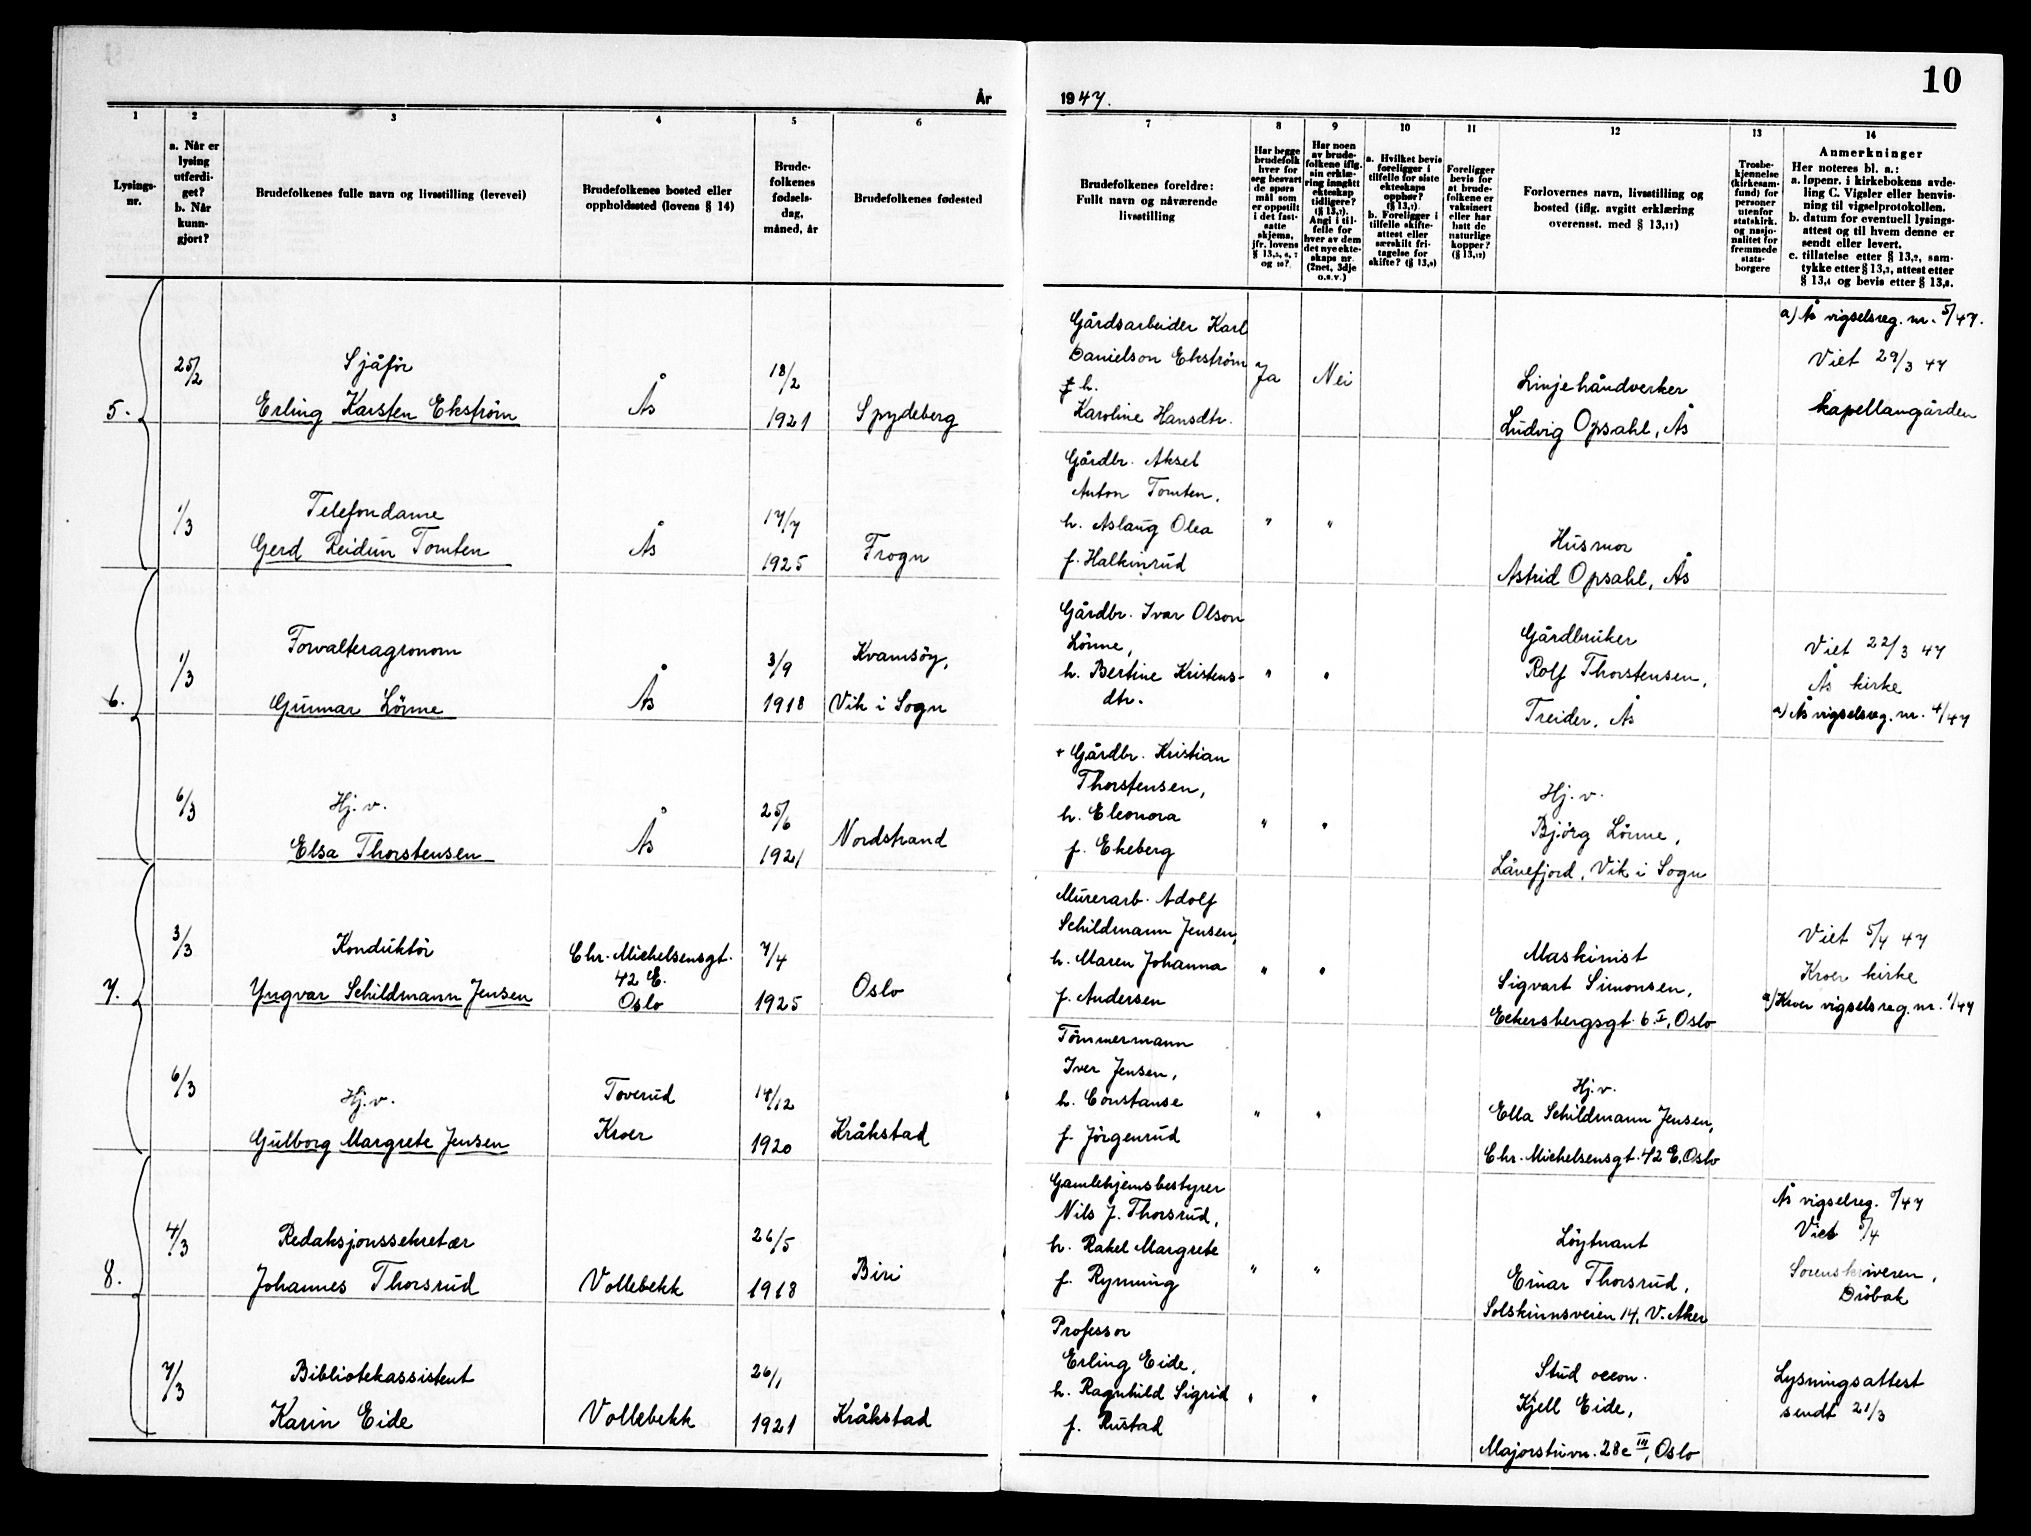 10
År 1947.
1 2 3 4 5 6 7 8 9 10 11 12 13 14
Lysings-
nr.
a. Når er
lysing
utferdi-
get?
b. Når
kunn-
gjort?
Brudefolkenes fulle navn og livsstilling (levevei)
Brudefolkenes bosted eller
oppholdssted (lovens § 14)
Brude-
folkenes
fødsels-
dag,
måned, år
Brudefolkenes fødested
Brudefolkenes foreldre:
Fullt navn og nåværende
livsstilling
Har begge
brudefolk
hver for
seg besvart
de spørs
mål som
er oppstilt
i det fast-
satte
skjema,
jfr. lovens
§ 13,5, 6, 7
og 10?
Har noen
av brude-
folkene iflg.
sin erklæ-
ring inngått
ekteskap
tidligere?
(§ 13,7).
Angi i til-
felle for
hver av dem
det nye ekte-
skaps nr.
(2net, 3dje
o.s.v.)
a. Hvilket bevis
foreligger i
tilfelle for siste
ekteskaps
opphør?
(§ 13,7)
b. Foreligger i
tilfelle skifte-
attest eller
særskilt fri-
tagelse for
skifte? (§ 13,9)
Foreligger
bevis for
at brude-
folkene er
vaksinert
eller har
hatt de
naturlige
kopper?
(§ 13,12)
Forlovernes navn, livsstilling og
bosted (iflg. avgitt erklæring
overensst. med § 13,11)
Trosbe-
kjennelse
(kirkesam-
fund) for
personer
utenfor
statskirk.
og nasjo-
nalitet for
fremmede
stats-
borgere
Anmerkninger
Her noteres bl. a.:
a. løpenr. i kirkebokens avde-
ling C. Vigsler eller henvis-
ning til vigselprotokollen.
b. datum for eventuell lysings-
attest og til hvem denne er
sendt eller levert.
c. tillatelse etter § 13,2, sam-
tykke etter § 13,3, attest etter
§ 13,4 og bevis etter § 13,8.
5.
25/2
Sjåfør
Erling Karsten Ekström
Ås
18/2
1921
Spydeberg
Gårdsarbeider Karl
Danielson Ekström
h.
Karoline Hansdtr.
Ja
Nei
Linjehåndverker
Ludvig Opsahl, Ås
a) Ås vigselsreg. nr. 5/47.
Viet 29/3 47
Kapellangården
1/3
Telefondame
Gerd Reidun Tomten
Ås
17/7
1925
Frogn
Gårdbr. Aksel
Anton Tomten,
h. Aslaug Olea
f. Halkinrud
" "
Husmor
Astrid Opsahl, Ås
6.
1/3
Forvalteragronom
Gunnar Lönne
Ås
3/9
1918
Kvamsöy,
Vik i Sogn
Gårdbr. Ivar Olson
Lönne,
h. Bertine Kristens-
dtr.
" "
Gårdbruker
Rolf Thorstensen,
Treider, Ås
Viet 22/3 47
Ås kirke
a) Ås vigselsreg. nr. 4/47
6/3
Hj. v.
Elsa Thorstensen
Ås
25/6
1921
Nordstrand
+ Gårdbr. Kristian
Thorstensen,
h. Eleonora
f. Ekeberg
" "
Hj. v.
Björg Lönne,
Lånefjord, Vik i Sogn
7.
3/3
Konduktör
Yngvar Schildmann Jensen
Chr. Michelsensgt.
42 E.
Oslo
7/4
1925
Oslo
Murerarb. Adolf
Schildmann Jensen,
h. Maren Johanna
f. Andersen
" "
Maskinist
Sigvart Simonsen,
Eckersbergsgt. 6. I, Oslo
Viet 5/4 47
Kroer kirke
a) Kroer vigselsreg. nr. 1/47
6/3
Hj. v.
Gulborg Margrete Jensen
Toverud
Kroer
14/12
1920
Kråkstad
Tömmermann
Iver Jensen,
h. Constanse
f. Jörgenrud
" "
Hj. v.
Ella Schildmann Jensen,
Chr. Michelsensgt. 42 E, Oslo
8.
4/3
Redaksjonssekretær
Johannes Thorsrud
Vollebekk
26/5
1918
Biri
Gamlehjemsbestyrer
Nils J. Thorsrud,
h. Rakel Margrete
f. Rynning
" "
Löytnant
Einar Thorsrud,
Solskinnsveien 14, V. Aker
Ås vigselreg. /47
Viet 5/4
Sorenskriveren,
Dröbak
7/3
Bibliotekassistent
Karin Eide
Vollebekk
26/1
1921
Kråkstad
Professor
Erling Eide,
h. Ragnhild Sigrid
f. Rustad
" "
Stud oecon.
Kjell Eide,
Majorstuvn. 28c III, Oslo
Lysningsattest
sendt 21/3